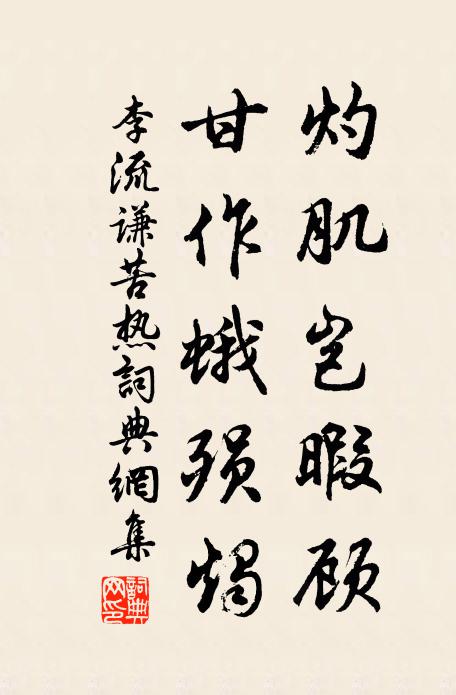 灼肌岂暇顾
甘作蛾殒烛
李流谦苦热词典網集
詞典网印